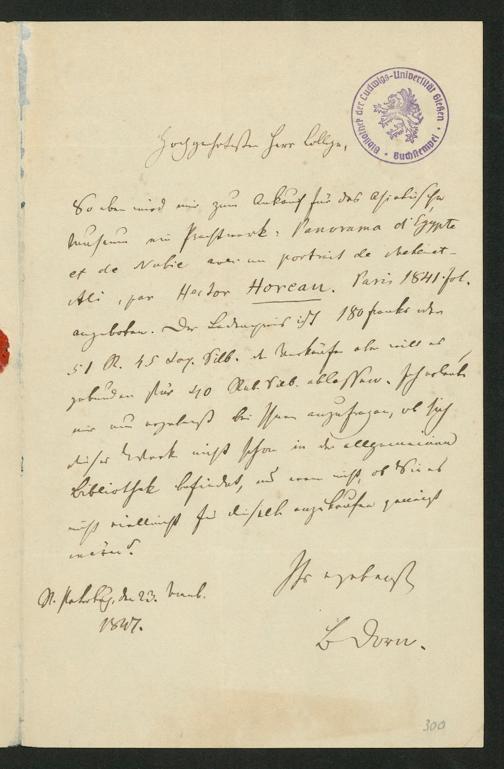 Bibliothek der Ludwigs-Universität Gießen
Buchstempel
Hochgeehrtester Herr College,
So eben wird mir zum Ankauf für das Asiatische
Museum ein Prachtwerk: Panorama d'Egypte
et de Nubie avec un portrait de Mehmet-
Ali, par Hector Horeau. Paris 1841. fol.
angeboten. Der Ladenpreis ist 180 franks oder
51 R. 45 Cop. Silb. der Verkäufer aber will es
gebunden für 40 Rub. Silb. ablassen. Ich erlaube
mir nun ergebenst bei Ihnen anzufragen, ob sich
dieses Werk nicht schon in der allgemeinen
Bibliothek befindet, und wenn nicht, ob Sie es
nicht vielleicht für dieselbe anzukaufen geneigt
wären?
Ihr ergebenster
B Dorn.
St. Petersburg, den 23.
1847.
300